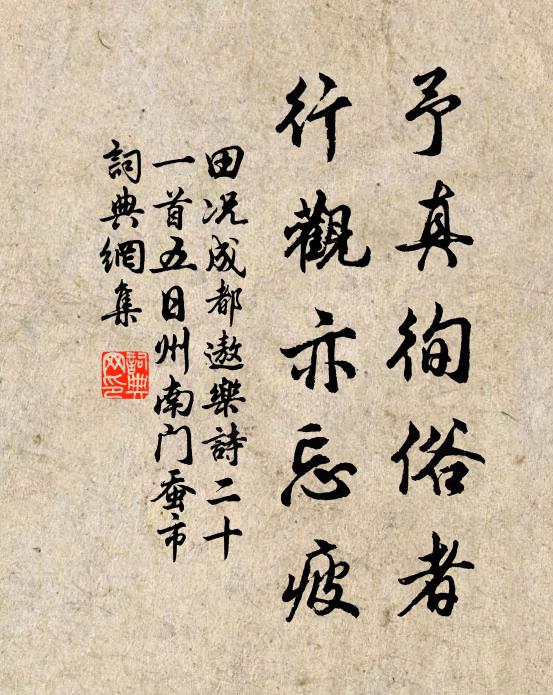 予真徇俗者
行觀亦忘疲
田况成都遨樂詩二十
一首五日州南门蚕市
詞典網集
詞典
网印